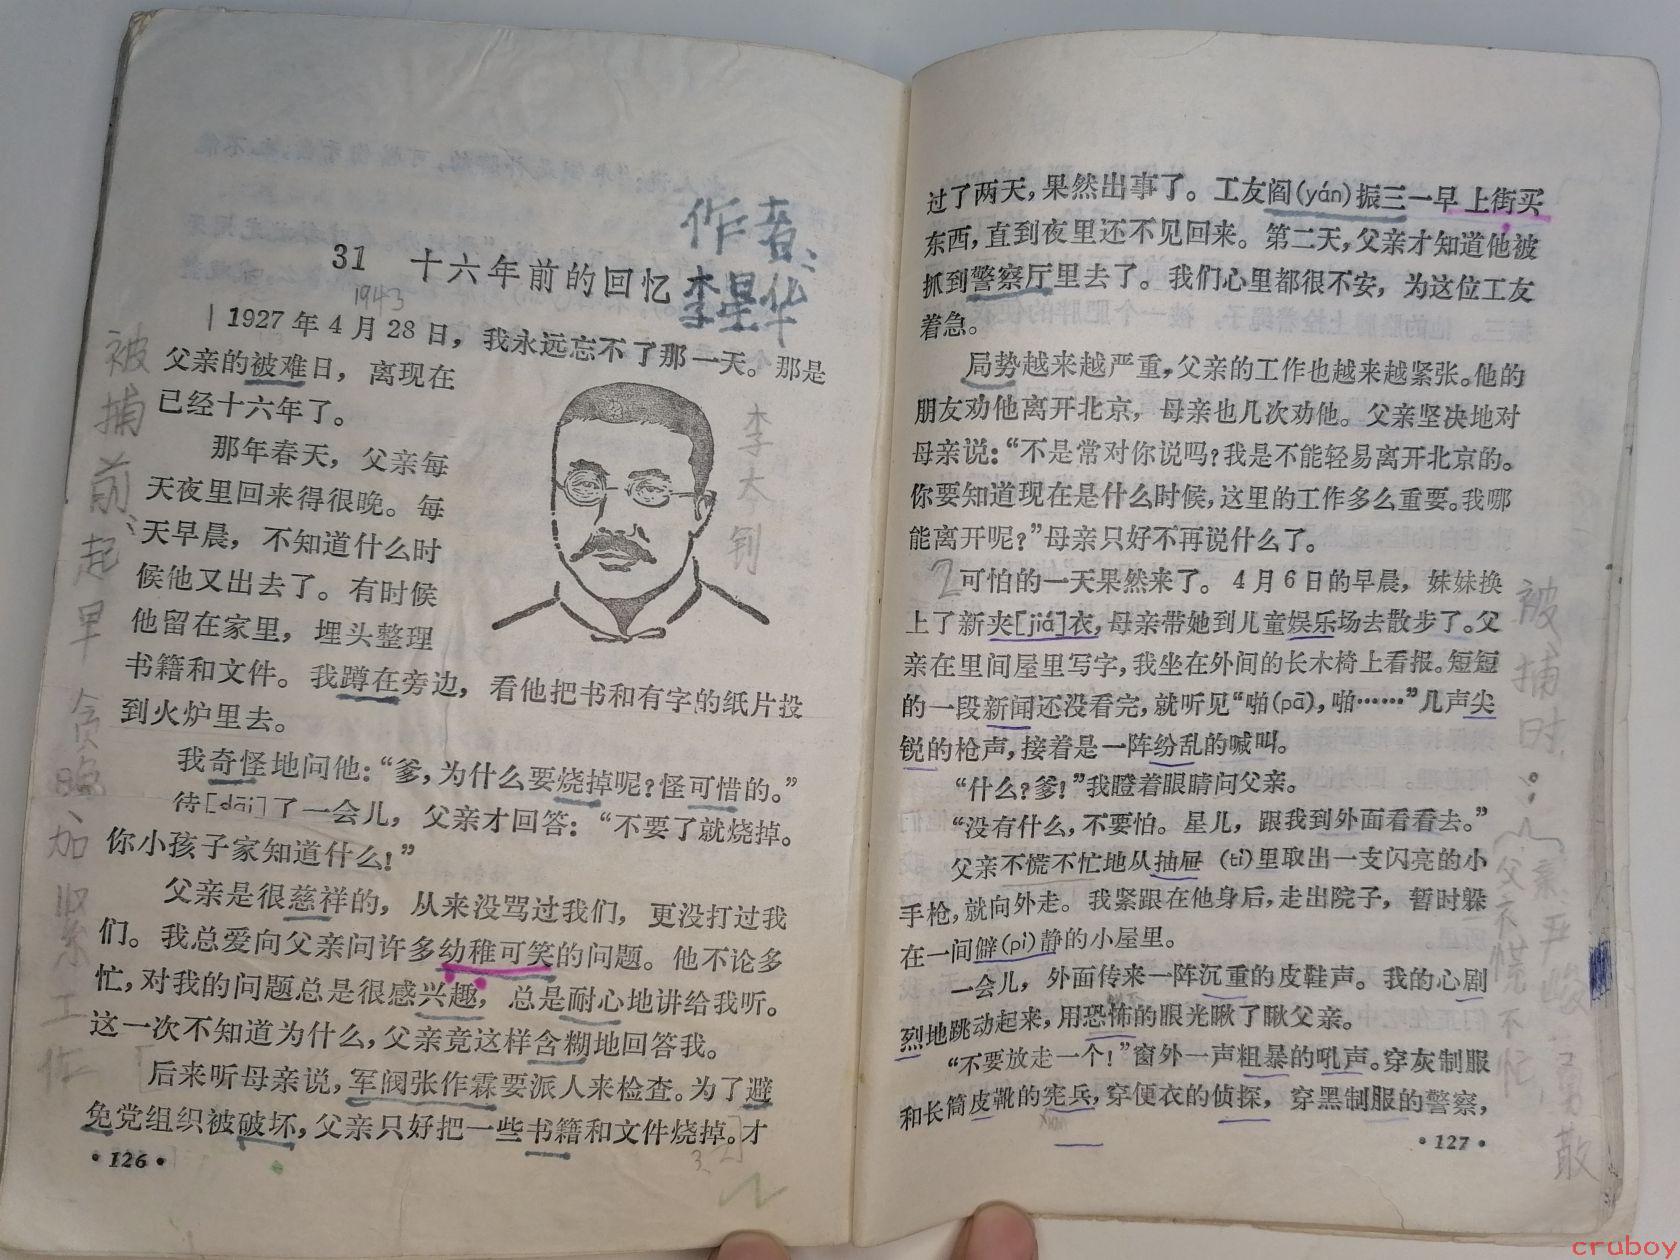 作者、
31 十六年前的回忆 李星华
1943
1927年4月28日，我永远忘不了那一天。那是
父亲的被难日，离现在
已经十六年了。
那年春天，父亲每
天夜里回来得很晚。每
天早晨，不知道什么时
候他又出去了。有时候
他留在家里，埋头整理
书籍和文件。我蹲在旁边，看他把书和有字的纸片投
到火炉里去。
我奇怪地问他：“爹，为什么要烧掉呢？怪可惜的。”
待[dāi]了一会儿，父亲才回答：“不要了就烧掉。
你小孩子家知道什么！”
父亲是很慈祥的，从来没骂过我们，更没打过我
们。我总爱向父亲问许多幼稚可笑的问题。他不论多
忙，对我的问题总是很感兴趣，总是耐心地讲给我听。
这一次不知道为什么，父亲竟这样含糊地回答我。
后来听母亲说，军阀张作霖要派人来检查。为了避
免党组织被破坏，父亲只好把一些书籍和文件烧掉。才
·126·
李大钊
被捕前、起早贪晚、加紧工作
过了两天，果然出事了。工友阎(yán)振三一早上街买
东西，直到夜里还不见回来。第二天，父亲才知道他被
抓到警察厅里去了。我们心里都很不安，为这位工友
着急。
局势越来越严重，父亲的工作也越来越紧张。他的
朋友劝他离开北京，母亲也几次劝他。父亲坚决地对
母亲说：“不是常对你说吗？我是不能轻易离开北京的。
你要知道现在是什么时候，这里的工作多么重要。我哪
能离开呢？”母亲只好不再说什么了。
2 可怕的一天果然来了。4月6日的早晨，妹妹换
上了新夹[jiá]衣，母亲带她到儿童娱乐场去散步了。父
亲在里间屋里写字，我坐在外间的长木椅上看报。短短
的一段新闻还没看完，就听见“啪(pā)，啪……”几声尖
锐的枪声，接着是一阵纷乱的喊叫。
“什么？爹！”我瞪着眼睛问父亲。
“没有什么，不要怕。星儿，跟我到外面看看去。”
父亲不慌不忙地从抽屉(tì)里取出一支闪亮的小
手枪，就向外走。我紧跟在他身后，走出院子，暂时躲
在一间僻(pì)静的小屋里。
一会儿，外面传来一阵沉重的皮鞋声。我的心剧
烈地跳动起来，用恐怖的眼光瞅了瞅父亲。
“不要放走一个！”窗外一声粗暴的吼声。穿灰制服
和长筒皮靴的宪兵，穿便衣的侦探，穿黑制服的警察，
·127·
被捕时：
父不慌不忙
cruboy